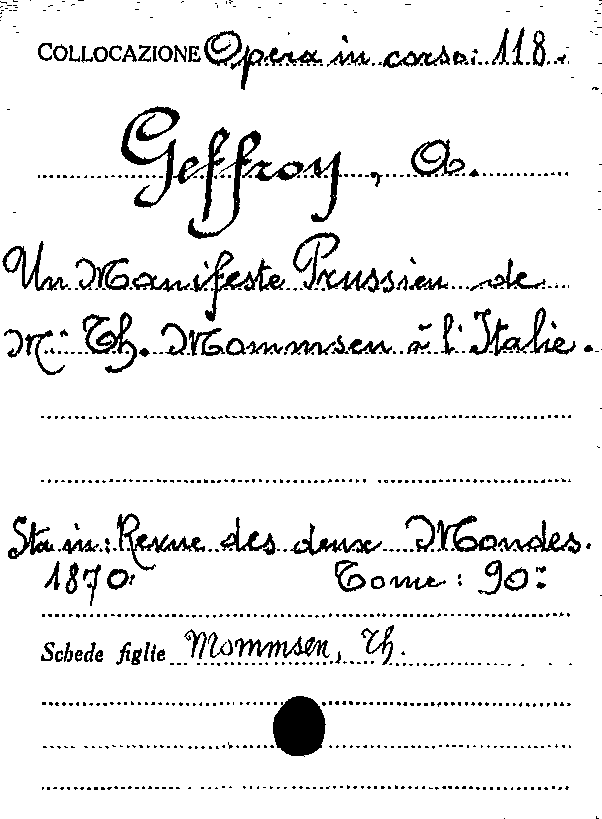 COLLOCAZIONE Opera in corso: 118.
Geffroy, A.
Un Manifeste Prussien de
M.r Th. Mommsen à l'Italie.
Sta in: Revue des deux Mondes.
1870. Tome: 90.º
Schede figlie Mommsen, Th.